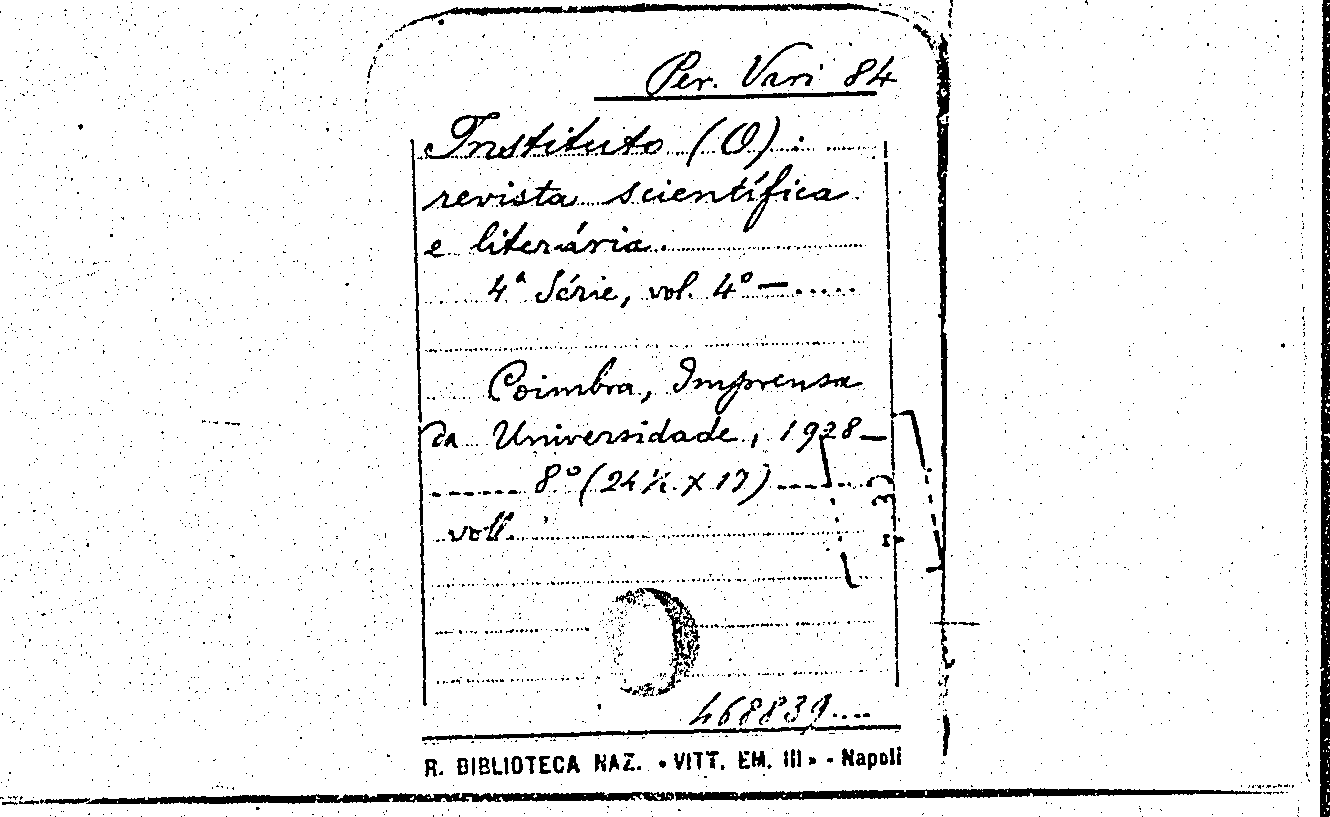 Per. Vari 84
Instituto (O) :
revista scientífica
e literária.
4ª Série, vol. 4º — .....
Coimbra, Imprensa
da Universidade, 1928 —
------ 8º (24 ½ X 17) ------
voll.
468839....
R. BIBLIOTECA NAZ. « VITT. EM. III » - Napoli